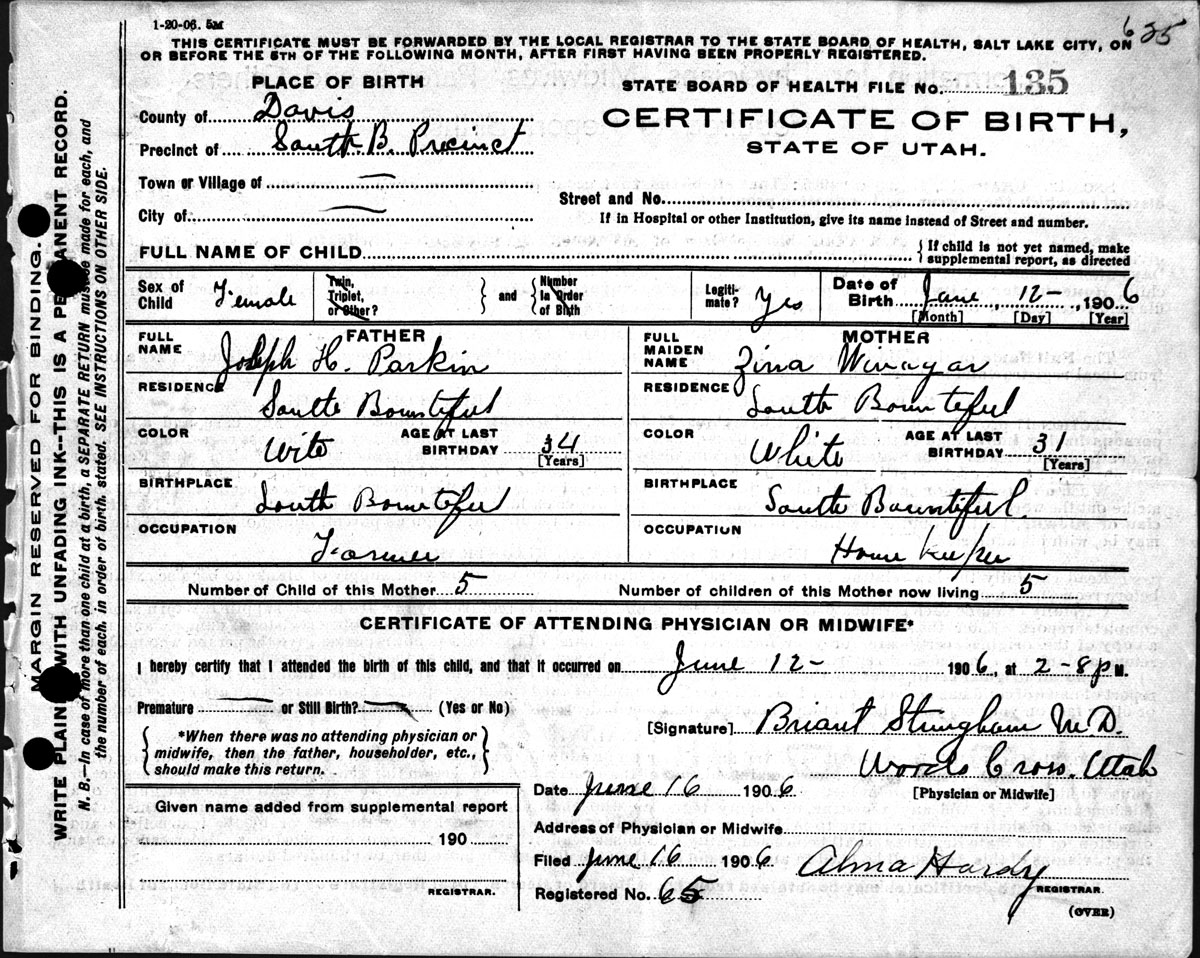 1-20-06. 5M
625
THIS CERTIFICATE MUST BE FORWARDED BY THE LOCAL REGISTRAR TO THE STATE BOARD OF HEALTH, SALT LAKE CITY, ON
OR BEFORE THE 5TH OF THE FOLLOWING MONTH, AFTER FIRST HAVING BEEN PROPERLY REGISTERED.
PLACE OF BIRTH
STATE BOARD OF HEALTH FILE No. 135
County of Davis
CERTIFICATE OF BIRTH,
Precinct of South B. Precinct
STATE OF UTAH.
Town or Village of —
Street and No.
City of —
If in Hospital or other Institution, give its name instead of Street and number.
FULL NAME OF CHILD
{ If child is not yet named, make
supplemental report, as directed
Sex of Child Female
Twin, Triplet, or Other? } and { Number in Order of Birth
Legiti-mate? Yes
Date of Birth June 12 — 1906
[Month] [Day] [Year]
FATHER
FULL NAME Joseph H. Parkin
RESIDENCE South Bountiful
COLOR Wite AGE AT LAST BIRTHDAY 34 [Years]
BIRTHPLACE South Bountiful
OCCUPATION Farmer
MOTHER
FULL MAIDEN NAME Zina Winagar
RESIDENCE South Bountiful
COLOR White AGE AT LAST BIRTHDAY 31 [Years]
BIRTHPLACE South Bountiful.
OCCUPATION Home Keeper
Number of Child of this Mother 5 Number of children of this Mother now living 5
CERTIFICATE OF ATTENDING PHYSICIAN OR MIDWIFE*
I hereby certify that I attended the birth of this child, and that it occurred on June 12 - 1906, at 2-8p M.
Premature — or Still Birth? — (Yes or No)
*When there was no attending physician or
midwife, then the father, householder, etc.,
should make this return.
[Signature] Briant Stringham M.D.
Woods Cross, Utah
[Physician or Midwife]
Date June 16 1906
Address of Physician or Midwife
Filed June 16 1906 Alma Hardy
REGISTRAR.
Registered No. 65
(OVER)
Given name added from supplemental report
190
REGISTRAR.
MARGIN RESERVED FOR BINDING.
WRITE PLAIN WITH UNFADING INK--THIS IS A PE ANENT RECORD.
N. B.—In case of more than one child at a birth, a SEPARATE RETURN must be made for each, and
the number of each, in order of birth, stated. SEE INSTRUCTIONS ON OTHER SIDE.